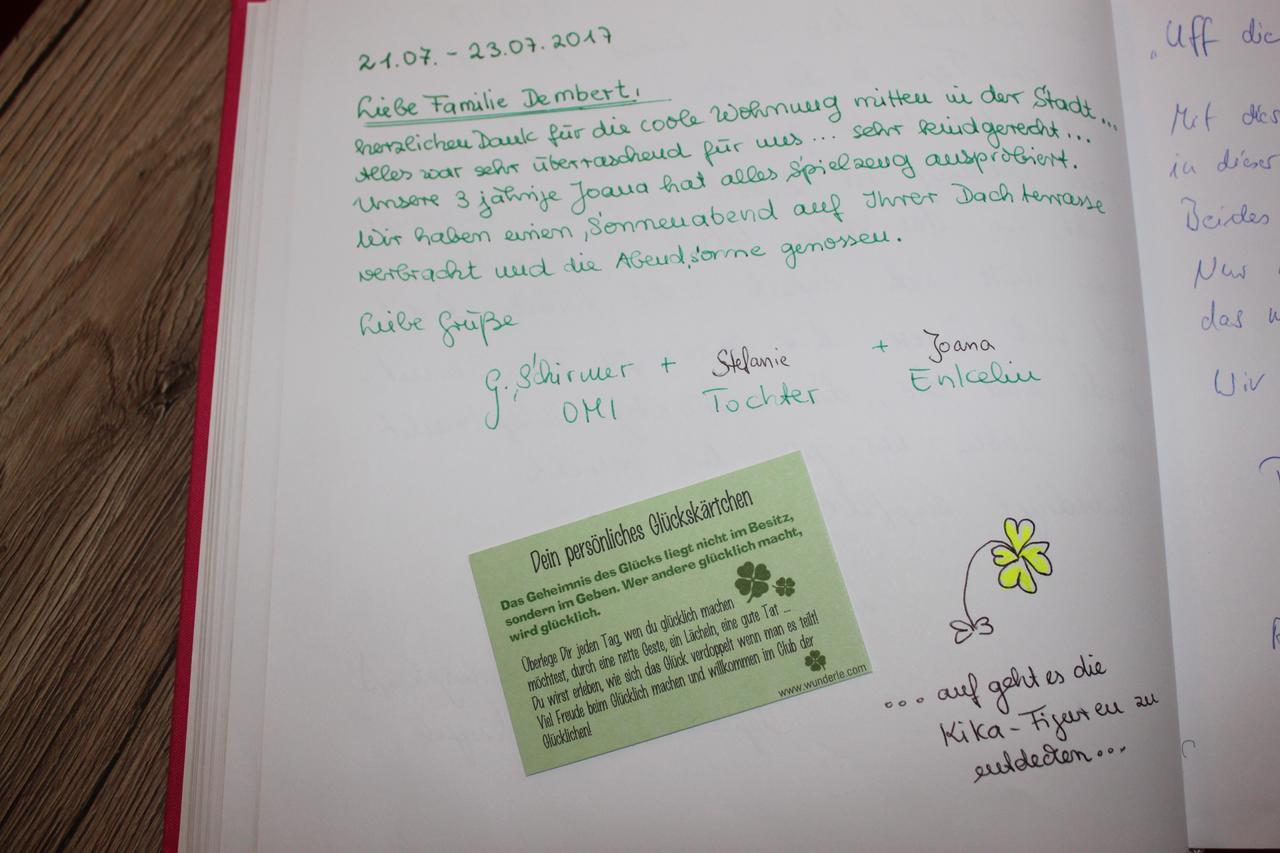 21.07. - 23.07.2017
Liebe Familie Dembert,
herzlichen Dank für die coole Wohnung mitten in der Stadt...
Alles war sehr überraschend für uns... sehr kindgerecht...
Unsere 3 jährije Joana hat alles Spielzeug ausprobiert.
Wir haben einen Sonnenabend auf Ihrer Dachterrasse
verbracht und die Abendsonne genossen.
Liebe Grüße
G. Schirmer + Stefanie + Joana
OMI Tochter Enkelin
Dein persönliches Glückskärtchen
Das Geheimnis des Glücks liegt nicht im Besitz,
sondern im Geben. Wer andere glücklich macht,
wird glücklich.
Überlege Dir jeden Tag, wen du glücklich machen
möchtest, durch eine nette Geste, ein Lächeln, eine gute Tat ...
Du wirst erleben, wie sich das Glück verdoppelt wenn man es teilt!
Viel Freude beim Glücklich machen und willkommen im Club der
Glücklichen!
www.wunderle.com
... auf geht es die
Kika-Figuren zu
entdecken...
"Uff die
Mit
in dieser
Beides
Nur
das
Wir